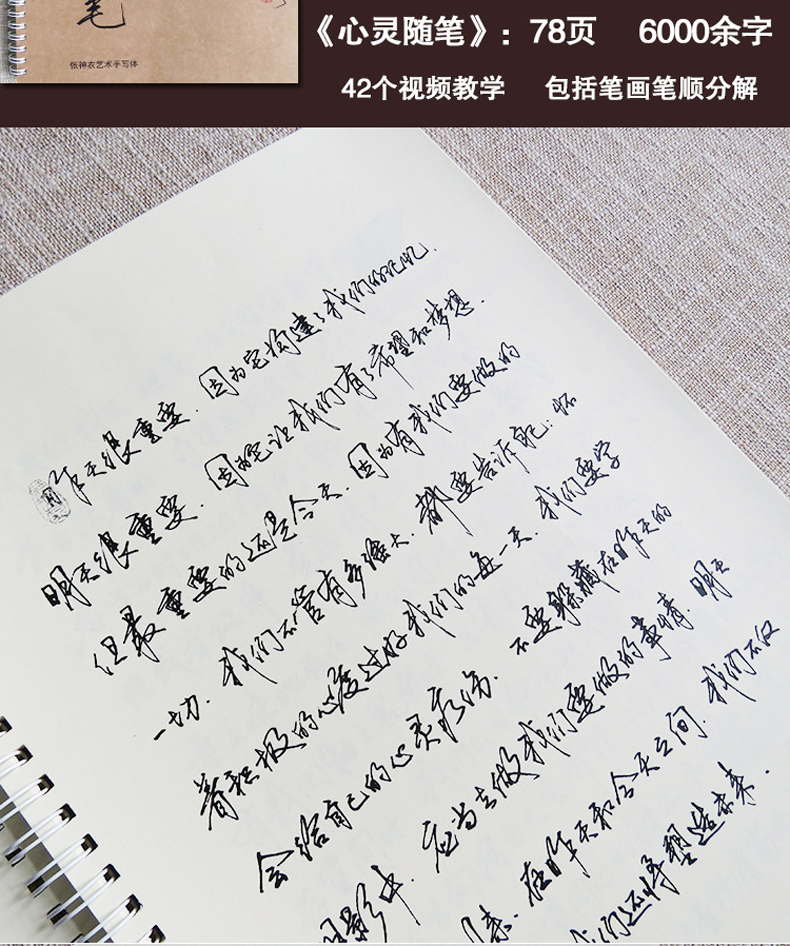 笔
张神农艺术手写体
《心灵随笔》：78页 6000余字
42个视频教学 包括笔画笔顺分解
昨天很重要，因为它构建了我们的记忆，
明天很重要，因为它让我们有了希望和梦想，
但最重要的还是今天，因为有我们要做的
一切，我们不管有多强大，都要告诉自己：怀
着积极的心度过好我们的每一天，我们要学
会给自己的心灵疗伤，不要躲藏在昨天的
阴影中，应当去做我们要做的事情，明天
在昨天和今天之间，我们不仅
我们还将塑造未来，